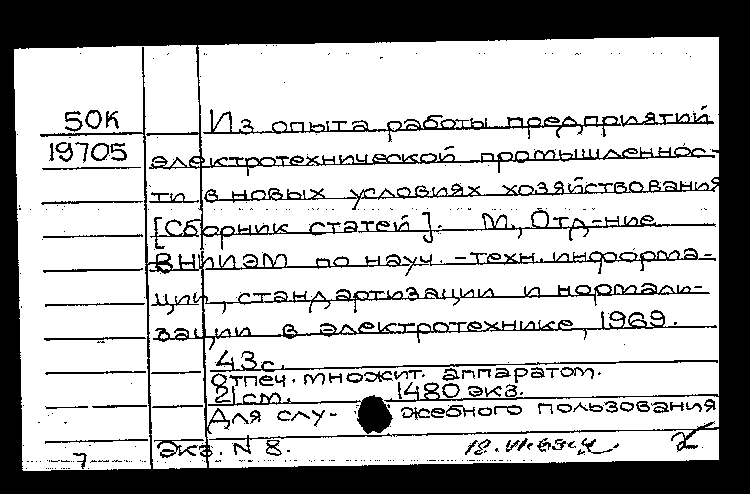 50К Из опыта работы предприятий
19705 електротехнической промышленнос-
ти в новых условиях хозяйствования
[Сборник статей]. М., Отд-ние
ВНИИЭМ по науч.-техн. информа-
ции, стандартизации и нормали-
зации в электротехнике, 1969.
43с.
Отпеч. множит. аппаратом.
21см. 1480 экз.
Для слу- жебного пользования
7 Экз. N 8.